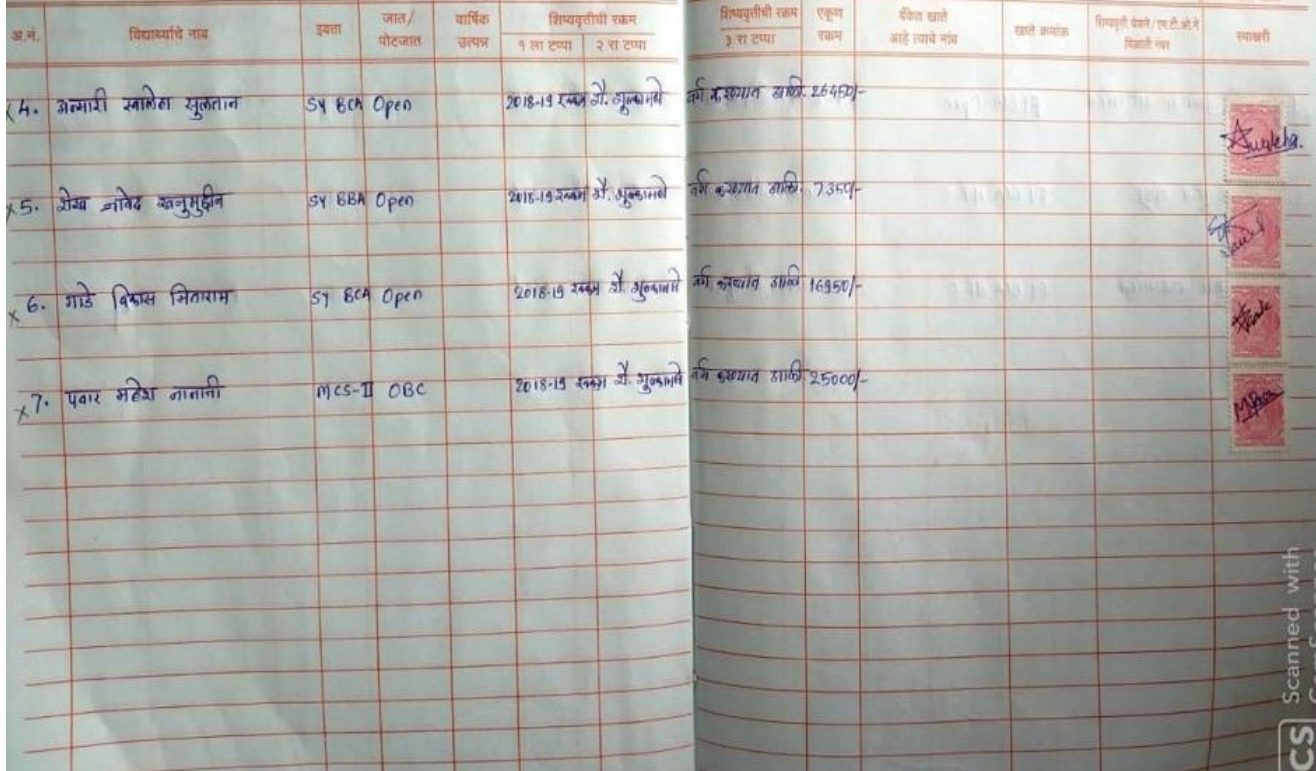 अ.नं. विद्यार्थ्यांचे नाव इयत्ता जात/पोटजात वार्षिक उत्पन्न शिष्यवृत्तीची रक्कम १ ला टप्पा २ रा टप्पा शिष्यवृत्तीची रक्कम ३ रा टप्पा एकूण रक्कम बँकेत खाते आहे त्याचे नांव खाते क्रमांक स्वाक्षरी
x 4. अन्सारी सालेहा सुलतान SY BCA Open 2018-19 रक्कम शै. शुल्कामधे वर्ग करण्यात आली. 26450/-
x 5. शेख जावेद SY BBA Open 2018-19 रक्कम शै. शुल्कामधे वर्ग करण्यात आली. 7350/-
x 6. गाडे विकास सिताराम SY BCA Open 2018-19 रक्कम शै. शुल्कामधे वर्ग करण्यात आली 16950/-
x 7. पवार महेश नानाजी MCS-II OBC 2018-19 रक्कम शै. शुल्कामधे वर्ग करण्यात आली. 25000/-
CS Scanned with